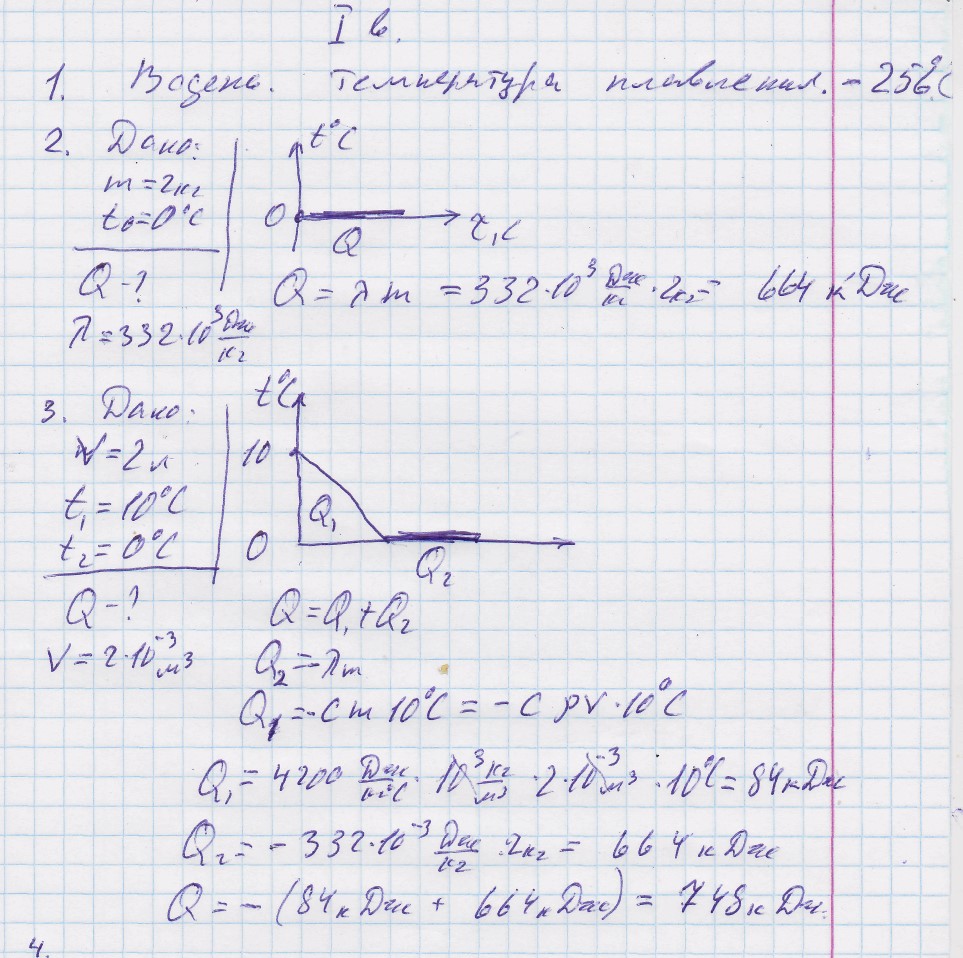 I в.
1. Водень. Температура плавления. - 256°С
2. Дано:
m = 2кг
t₀ = 0°С
Q - ?
λ = 332·10³ Дж/кг
t°С
0
Q
τ, с
Q = λ m = 332·10³ Дж/кг · 2кг = 664 кДж
3. Дано:
V = 2 л
t₁ = 10°С
t₂ = 0°С
Q - ?
V = 2·10⁻³ м³
t°С
10
Q₁
0
Q₂
Q = Q₁ + Q₂
Q₂ = - λm
Q₁ = - С m 10°С = - С ρV · 10°С
Q₁ = 4200 Дж/кг°С · 10³ кг/м³ · 2·10⁻³ м³ · 10°С = 84 кДж
Q₂ = - 332·10⁻³ Дж/кг · 2кг = 664 кДж
Q = - (84 кДж + 664 кДж) = 748 кДж.
4.